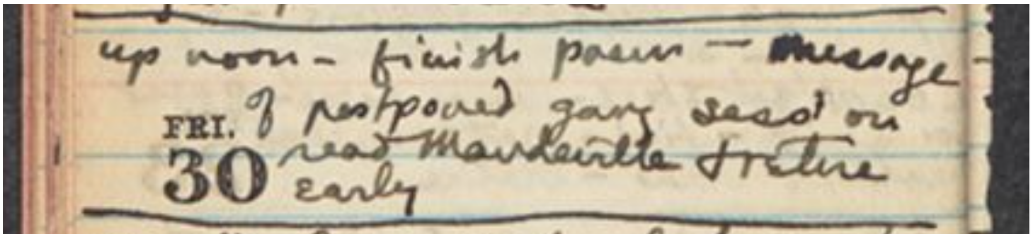 up noon – finish poem – message
FRI. of postponed gang session
30 read Mandeville & retire
early